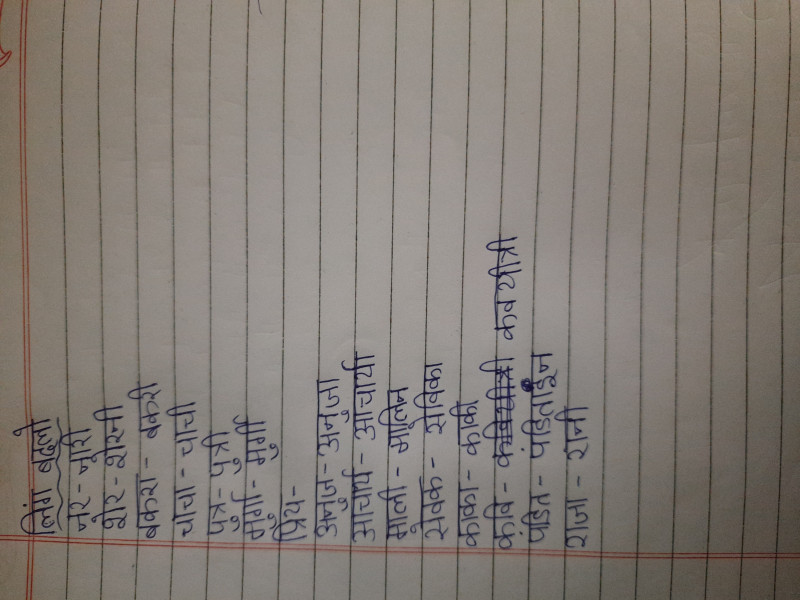 लिंग बदलो
नर - नारी
शेर - शेरनी
बकरा - बकरी
चाचा - चाची
पुत्र - पुत्री
मुर्गा - मुर्गी
प्रिय -
अनुज - अनुजा
आचार्य - आचार्या
माली - मालिन
सेवक - सेविका
काका - काकी
कवि - कवयीत्री
पंडित - पंडिताईन
राजा - रानी